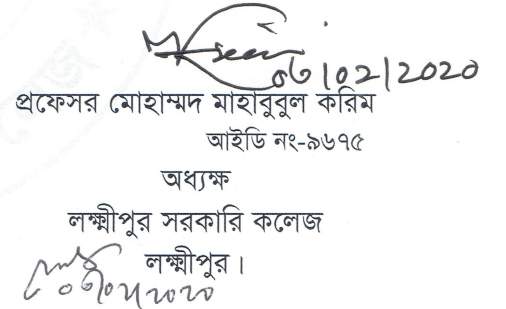 06/02/2020
প্রফেসর মোহাম্মদ মাহাবুবুল করিম
আইডি নং-৯৬৭৫
অধ্যক্ষ
লক্ষ্মীপুর সরকারি কলেজ
লক্ষ্মীপুর।
06/02/2020